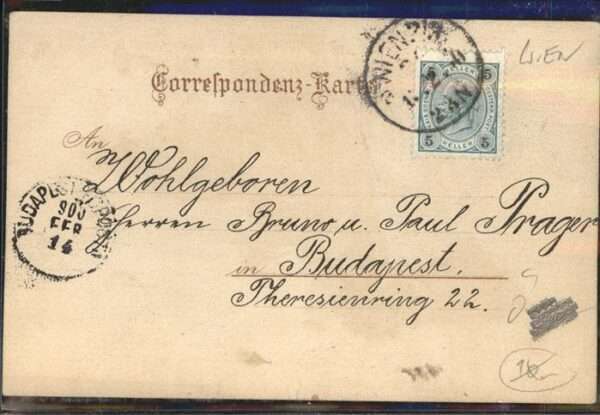 WIEN
Correspondenz-Karte
WIEN
5 5
HELLER
5 5
An
Wohlgeboren
Herren Bruno u. Paul Prager
in Budapest.
Theresienring 22.
BUDAPEST
900
FEB
14